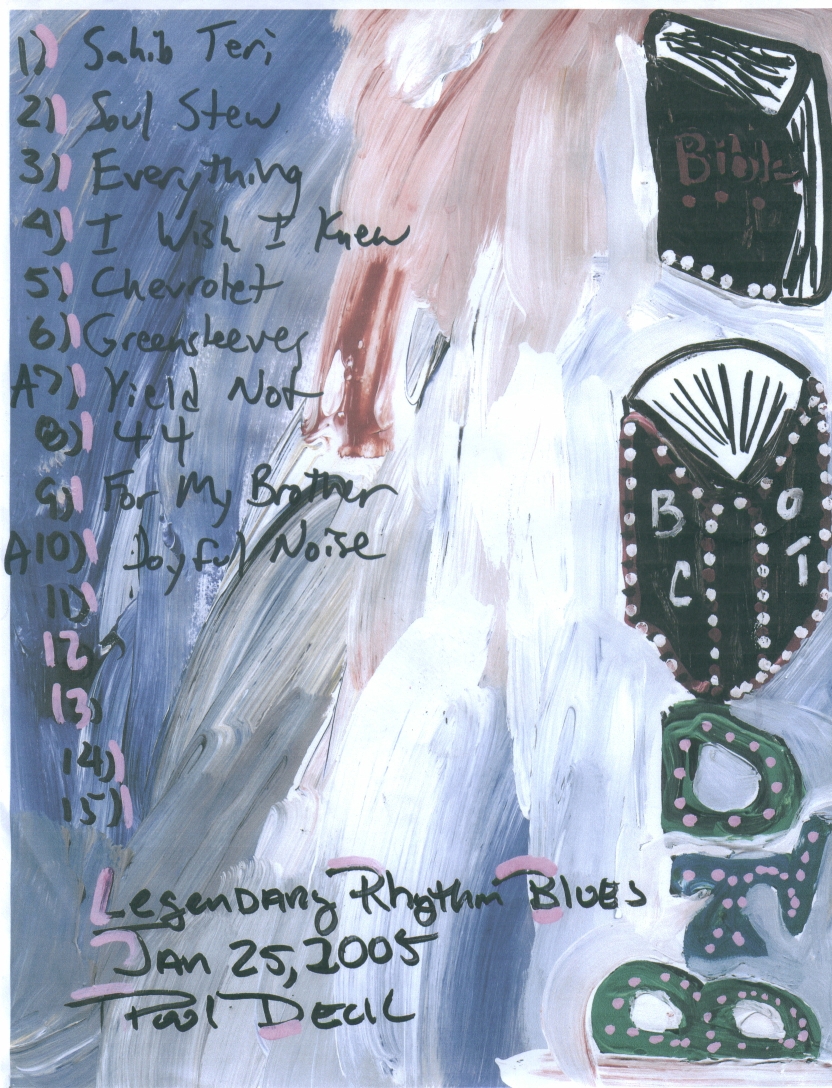 1) Sahib Teri
2) Soul Stew
3) Everything
4) I Wish I Knew
5) Chevrolet
6) Greensleeves
A7) Yield Not
8) 44
9) For My Brother
A10) Joyful Noise
11)
12
13)
14)
15)
Legendary Rhythm Blues
Jan 25, 2005
Pool Deck
Bible
B O
C T
DTB